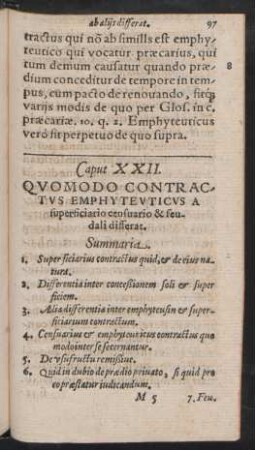 ab alijs differat. 97
tractus qui nō ab simills est emphy-
teutico qui vocatur præcarius, qui
tum demum causatur quando præ- 8
dium conceditur de tempore in tem-
pus, cùm pacto de renouando, fitq́;
varijs modis de quo per Glos. in c.
præcariæ. 10. q. 2. Emphyteuticus
verò fit perpetuo de quo supra.
Caput XXII.
QVOMODO CONTRAC-
TVS EMPHYTEVTICVS A
superficiario censuario & feu-
dali differat.
Summaria.
1. Superficiarius contractus quid, & de eius na-
tura.
2. Differentia inter concessionem soli & super
ficiem.
3. Alia differentia inter emphyteusin & super-
ficiarium contractum.
4. Censuarius & emphyteuticus contractus quo
modo inter se secernantur.
5. De vsufructu remissiue.
6. Quid in dubio de prædio priuato, si quid pro
eo præstatur iudicandum.
M 5 7. Feu.